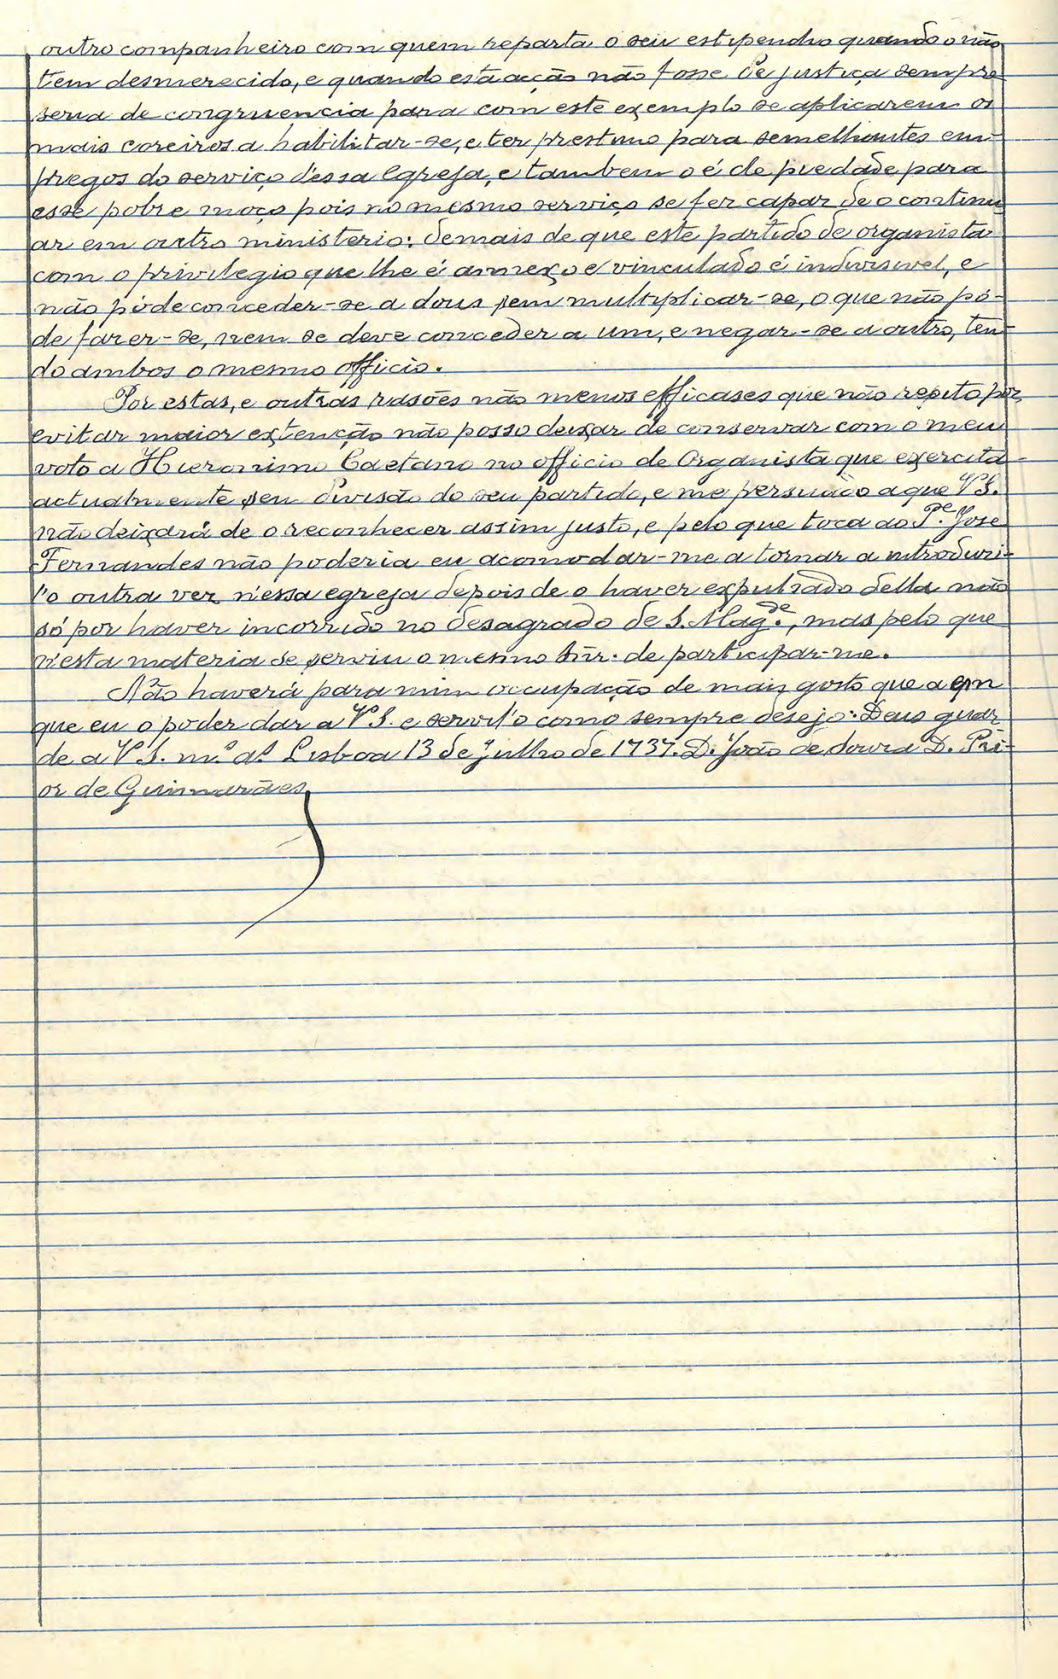 outro companheiro com quem reparta o seu estipendio quando o não
tem desmerecido, e quando esta acção não fosse de justiça sempre
seria de congruencia para com este exemplo se aplicarem os
mais coreiros a habilitar-se, e ter prestimo para semelhantes em-
pregos do serviço d'essa Egreja, e tambem o é de piedade para
esse pobre moço pois no mesmo serviço se fez capaz de o continu
ar em outro ministerio: demais de que este partido de organista
com o privilegio que lhe é annexo e vinculado é indivisivel, e
não póde conceder-se a dous sem multiplicar-se, o que não pó-
de fazer-se, nem se deve conceder a um, e negar-se a outro, ten-
do ambos o mesmo officio.
Por estas, e outras rasões não menos efficases que não repito por
evitar maior extenção não posso deixar de conservar com o meu
voto a Hieronimo Caetano no officio de Organista que exercita
actualmente sem divisão do seu partido, e me persuado a que V S.
não deixará de o reconhecer assim justo, e pelo que toca ao P.e José
Fernandes não poderia eu acomodar-me a tornar a introduzi-
l'o outra vez n'essa egreja depois de o haver expulsado della não
só por haver incorrido no desagrado de S. Mag.de, mas pelo que
n'esta materia se serviu o mesmo Snr. de participar-me.
Não haverá para mim occupação de mais gosto que a em
que eu o poder dar a V S. e servil'o como sempre desejo: Deus guar
de a V S. m.s a.s Lisboa 13 de Julho de 1737. D. João de Souza D. Pri-
or de Guimarães